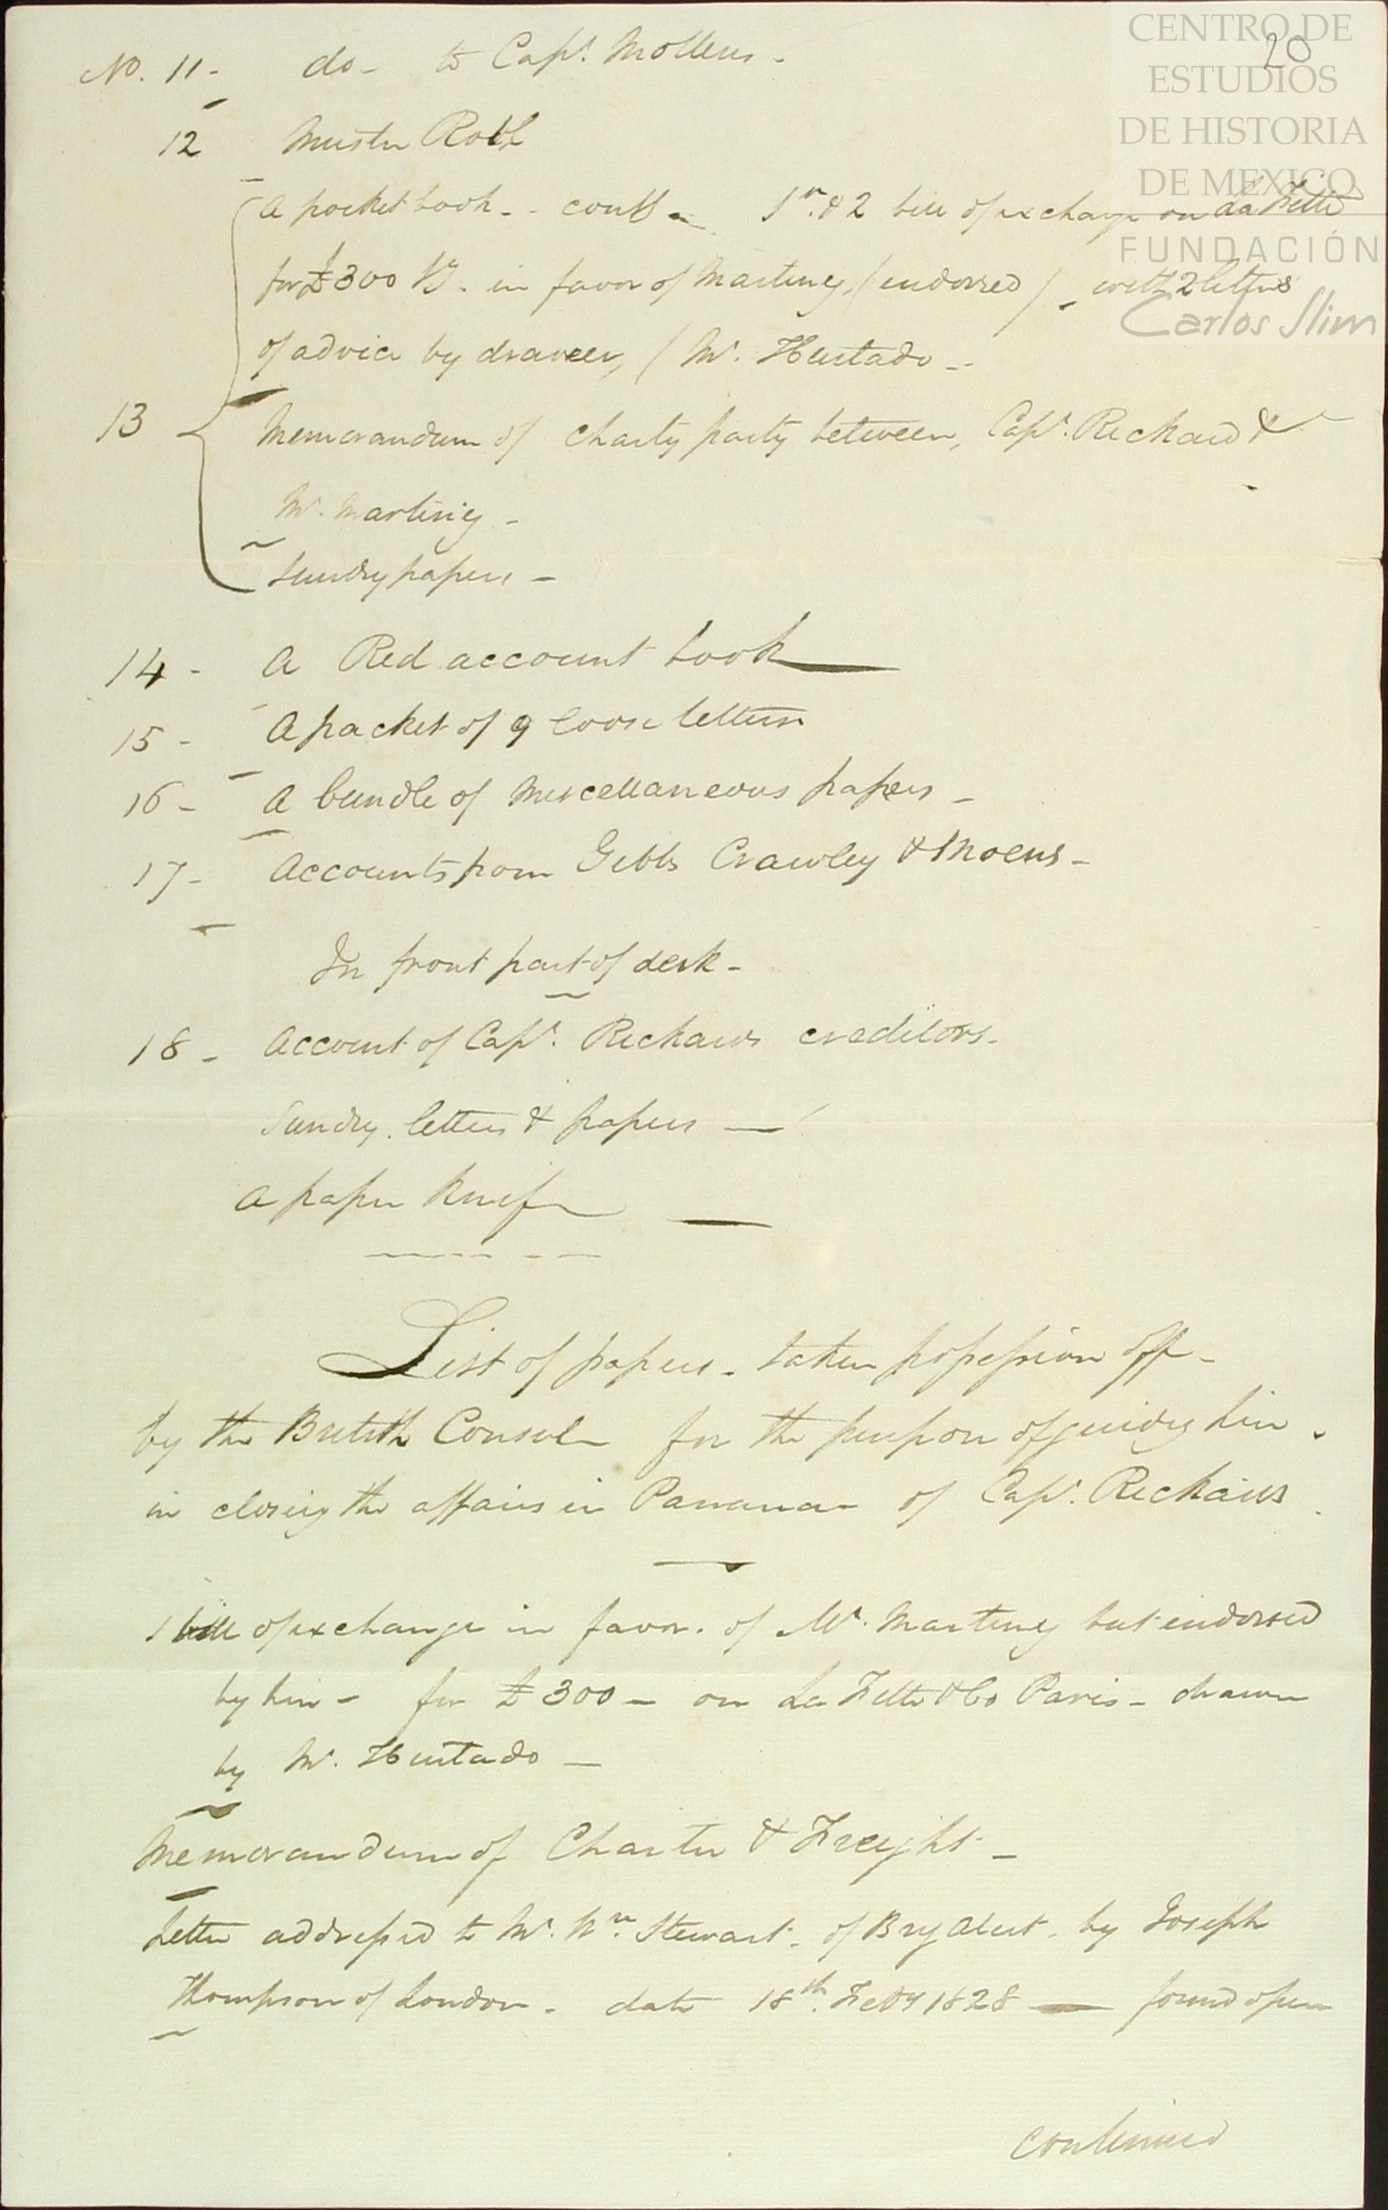 CENTRO DE
ESTUDIOS
DE HISTORIA
DE MEXICO
FUNDACIÓN
Carlos Slim
20
No. 11 - do - to Capt. Mollens -
12 Muster Roll
A pocket book - - contg - 1st & 2 bill of exchange on La Fitte
for £300 Sg. in favor of Martiney, (endorsed) - with 2 letters
of advice by drawer, / Mr. Hurtado - -
13 Memorandum of charty party between, Capt. Richard &
Mr. Martiney -
Sundry papers -
14 - A Red account book
15 - A packet of 9 loose letters
16 - A bundle of Miscellaneous papers -
17 - Accounts from Gibbs Crawley & Moens -
In front part of desk -
18 - Account of Capt. Richards creditors -
Sundry letters & papers —
A paper knife —
List of papers - taken possession off -
by the British Consul for the purpose of guiding him
in closing the affairs in Panama of Capt. Richards
1 bill of exchange in favor. of Mr. Martiney but endorsed
by him - for £300 - on La Fitte & Co Paris - drawn
by Mr. Hurtado —
Memorandum of Charter & Freight -
Letter addressed to Mr. Wm. Stewart - of Brg by Joseph
Thompson of London - date 18th. Feby 1828 — found open
Continued